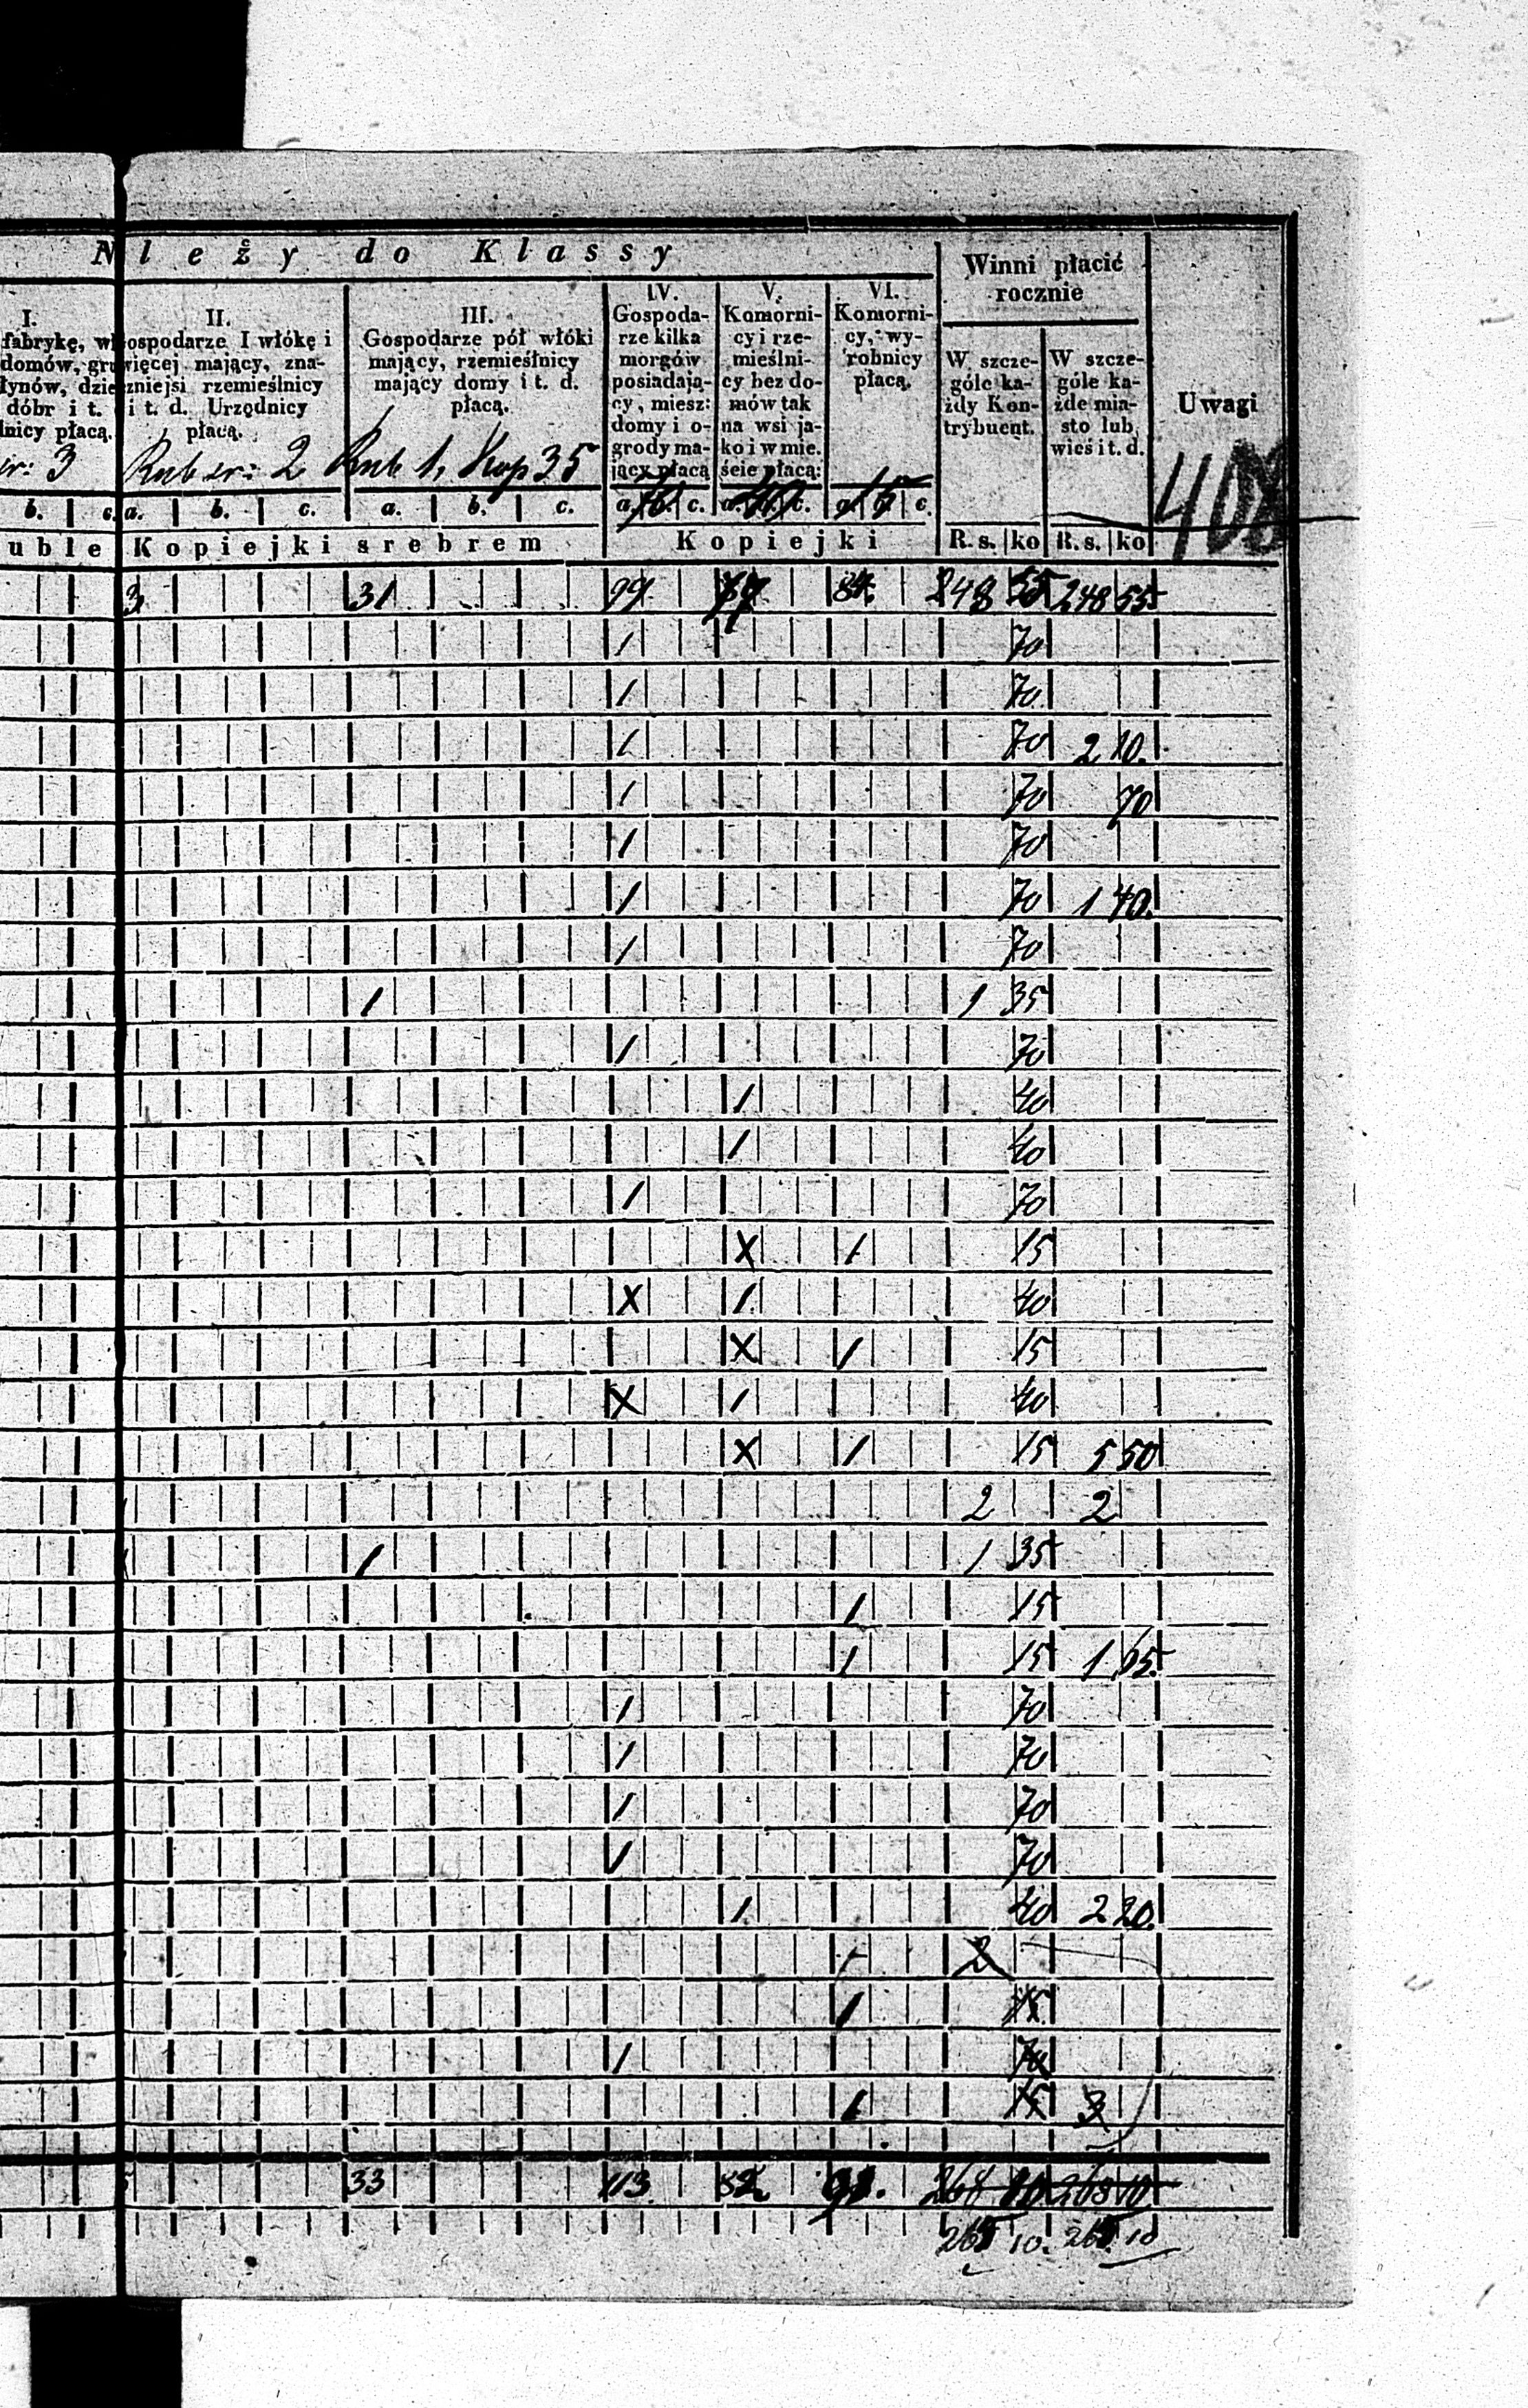 N leży do Klassy
Winni płacić
rocznie
Uwagi
I.
fabrykę, w
domów, gru
łynów, dzie
dóbr i t.
nicy płacą.
3
II.
ospodarze I włókę i
więcej mający, zna-
czniejsi rzemieślnicy
i t. d. Urzędnicy
płacą.
Rub sr: 2
III.
Gospodarze pół włóki
mający, rzemieślnicy
mający domy i t. d.
płacą.
Rub 1, Kop 35
IV.
Gospoda-
rze kilka
morgów
posiadają-
cy, miesz:
domy i o-
grody ma-
jący płacą
V.
Komorni-
cy i rze-
mieślni-
cy bez do-
mów tak
na wsi ja-
ko i w mie.
ście płacą:
VI.
Komorni-
cy, wy-
robnicy
płacą.
W szcze-
góle ka-
żdy Kon-
trybuent.
W szcze-
góle ka-
żde mia-
sto lub
wieś i t. d.
408
b. c. a. b. c. a. b. c. a. b. c. a. b. c. a. b. c.
uble Kopiejki srebrem Kopiejki R. s. ko R. s. ko
3 31 99 84 248 55 248 55
1 70
1 70
1 70 2 10.
1 70 70
1 70
1 70 1 40.
1 70
1 1 35
1 70
1 40
1 40
1 70
X 1 15
X 1 40
X 1 15
X 1 40
X 1 15 5 50
2 2
1 1 35
1 15
1 15 1 65
1 70
1 70
1 70
1 70
1 40 2 20.
2
1 15
1 70
1 15 3
33 113 82 268 10 268 10
265 10. 265 10